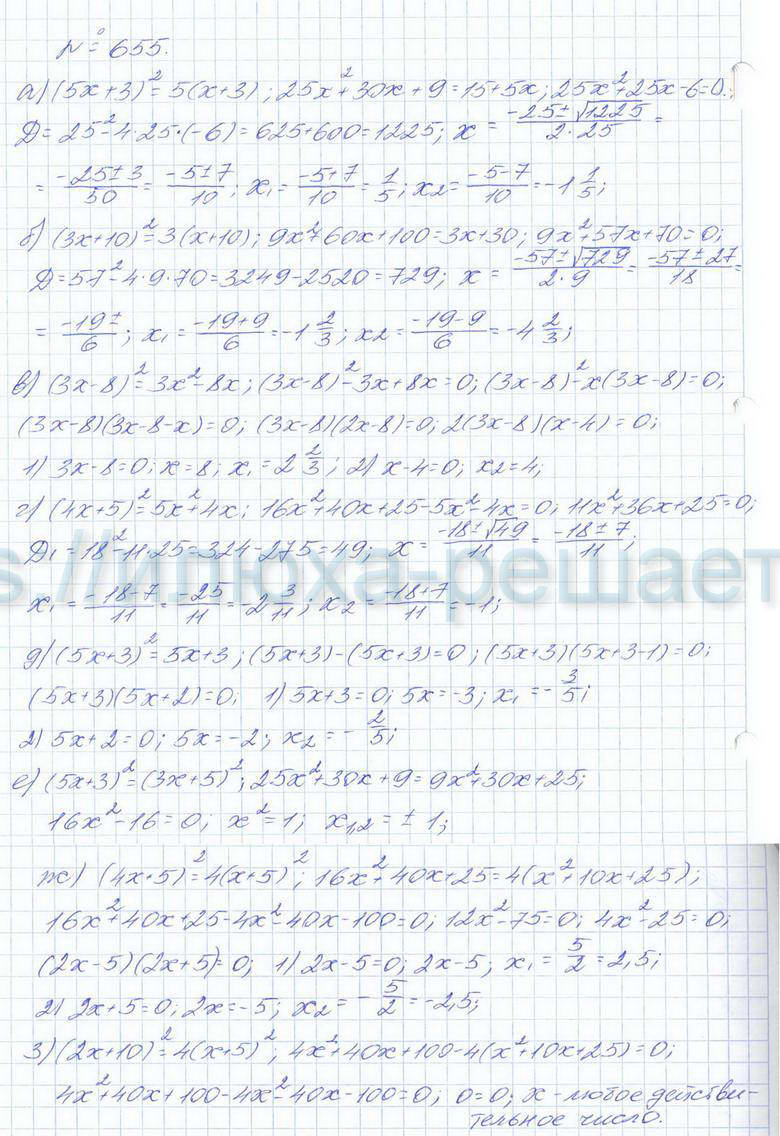 № 655.
а) (5x+3)²=5(x+3); 25x²+30x+9=15+5x; 25x²+25x-6=0.;
Д=25²-4·25·(-6)=625+600=1225; x = (-25±√1225)/(2·25) =
= (-25±3)/50 = (-5±7)/10; x₁ = (-5+7)/10 = 1/5; x₂ = (-5-7)/10 = -1 1/5;
б) (3x+10)²=3(x+10); 9x²+60x+100=3x+30; 9x²+57x+70=0;
Д=57²-4·9·70=3249-2520=729; x = (-57±√729)/(2·9) = (-57±27)/18 =
= (-19±)/6; x₁ = (-19+9)/6 = -1 2/3; x₂ = (-19-9)/6 = -4 2/3;
в) (3x-8)²=3x²-8x; (3x-8)²-3x+8x=0; (3x-8)²-x(3x-8)=0;
(3x-8)(3x-8-x)=0; (3x-8)(2x-8)=0; 2(3x-8)(x-4)=0;
1) 3x-8=0; x=8; x₁=2 2/3; 2) x-4=0; x₂=4;
г) (4x+5)²=5x²+4x; 16x²+40x+25-5x²-4x=0; 11x²+36x+25=0;
Д₁=18²-11·25=324-275=49; x = (-18±√49)/11 = (-18±7)/11;
x₁ = (-18-7)/11 = -25/11 = -2 3/11; x₂ = (-18+7)/11 = -1;
s //илюха-решает
д) (5x+3)²=5x+3; (5x+3)-(5x+3)=0; (5x+3)(5x+3-1)=0;
(5x+3)(5x+2)=0; 1) 5x+3=0; 5x=-3; x₁=-3/5;
2) 5x+2=0; 5x=-2; x₂=-2/5;
е) (5x+3)²=(3x+5)²; 25x²+30x+9=9x²+30x+25;
16x²-16=0; x²=1; x₁,₂=±1;
ж) (4x+5)²=4(x+5)²; 16x²+40x+25=4(x²+10x+25);
16x²+40x+25-4x²-40x-100=0; 12x²-75=0; 4x²-25=0;
(2x-5)(2x+5)=0; 1) 2x-5=0; 2x-5; x₁=5/2=2,5;
2) 2x+5=0; 2x=-5; x₂=-5/2=-2,5;
з) (2x+10)²=4(x+5)²; 4x²+40x+100-4(x²+10x+25)=0;
4x²+40x+100-4x²-40x-100=0; 0=0; x-любое действи-
тельное число.